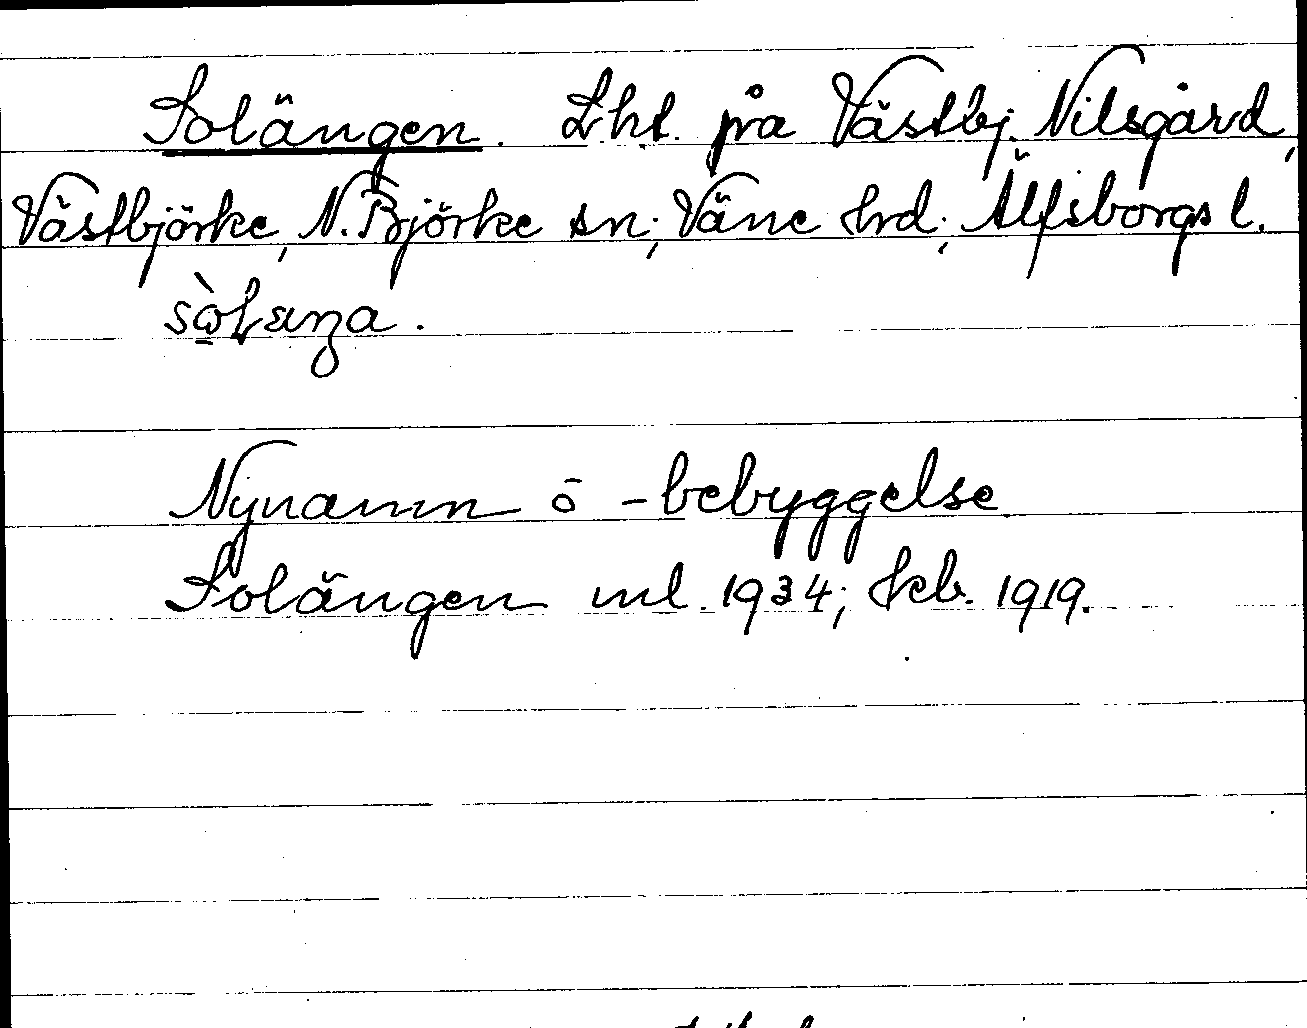 Solängen. Lht. på Västbj. Nilsgård,
Västbjörke, N. Björke sn; Väne hrd; Älfsborgs l.
sòlæŋa.
Nynamn o -bebyggelse
Solängen ml. 1934; hcb. 1919.